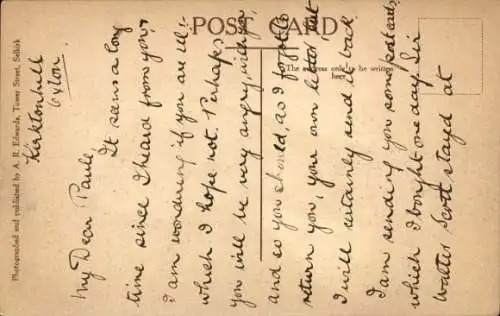 POST CARD
The address only to be written here.
Photographed and published by A. R. Edwards, Tower Street, Selkirk
Kirktonhill
Oxton.
My Dear Paule,
It seems a long
time since I heard from you.
I am wondring if you are ill:
which I hope not. Perhaps
you will be very angry with me,
and so you should, as I forgot to
return you, your own letter, but
I will certainly send it back.
I am sending you some postcards,
which I bought one day. Sir
Walter Scott stayed at